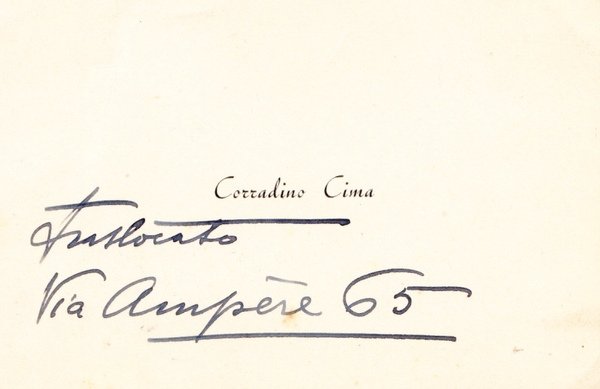 Corradino Cima
traslocato
Via Ampère 65